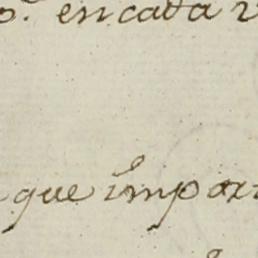 en cada
que impor